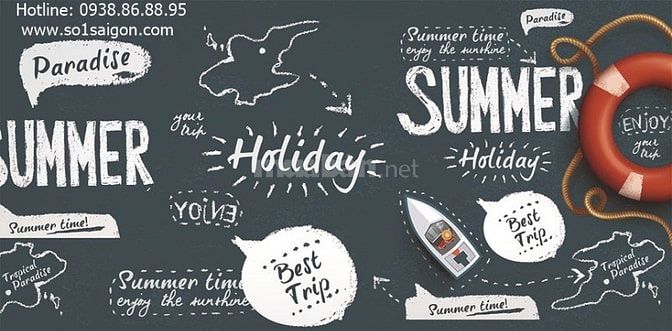 Hotline: 0938.86.88.95
www.so1saigon.com
Paradise
SUMMER
your
trip
Holiday
ENJOY
Summer time!
Tropical
Paradise
Summer time
enjoy the sunshine
Best
Trip
Paradise
Summer time
enjoy the sunshine
SUMMER
ENJOY
your
trip
Holiday
Best
Trip
Tropical
Paradise
Summer time!